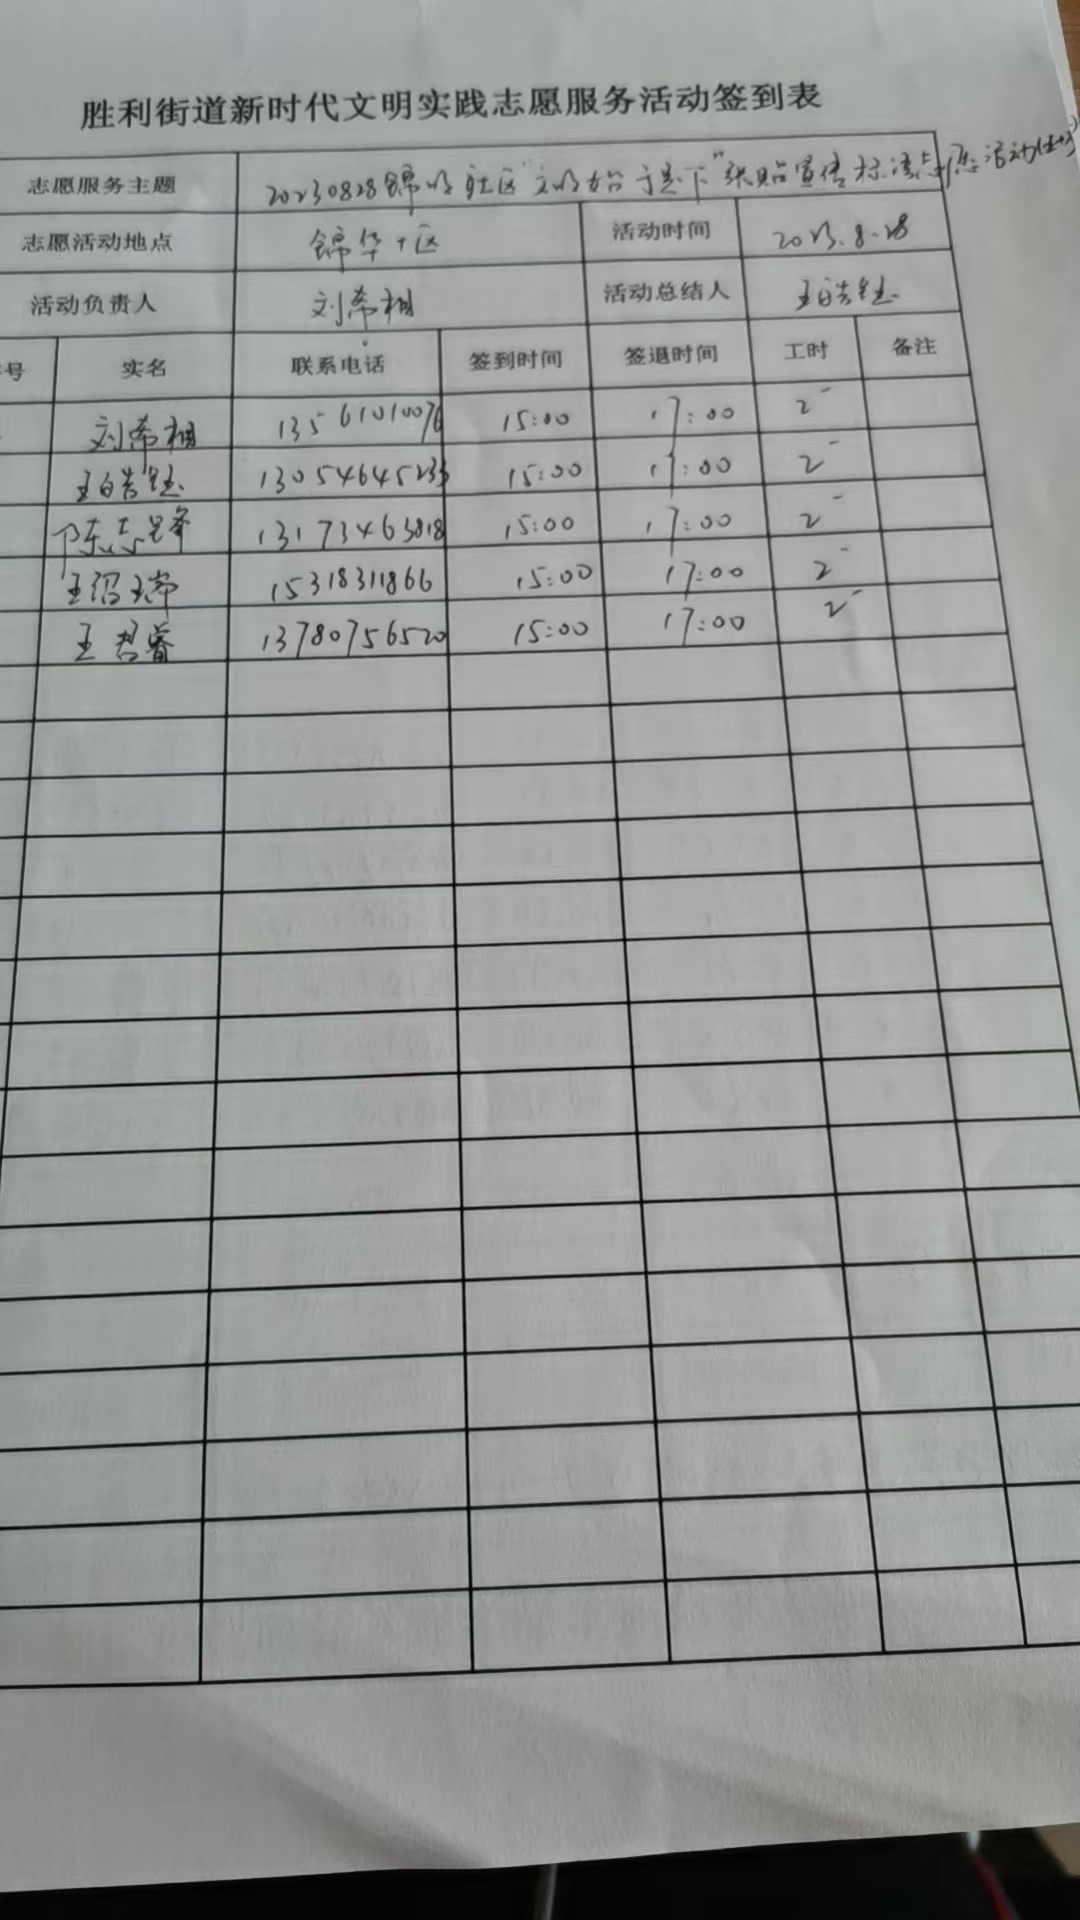 胜利街道新时代文明实践志愿服务活动签到表
志愿服务主题 20230828锦明社区"文明始于足下"张贴宣传标语志愿活动
志愿活动地点 锦华 区 活动时间 2023.8.28
活动负责人 刘希相 活动总结人 王皓钰
号 实名 联系电话 签到时间 签退时间 工时 备注
刘希相 13561010076 15:00 17:00 2
王皓钰 13054645233 15:00 17:00 2
陈志 13173463818 15:00 17:00 2
王 15318311866 15:00 17:00 2
王君睿 13780756520 15:00 17:00 2